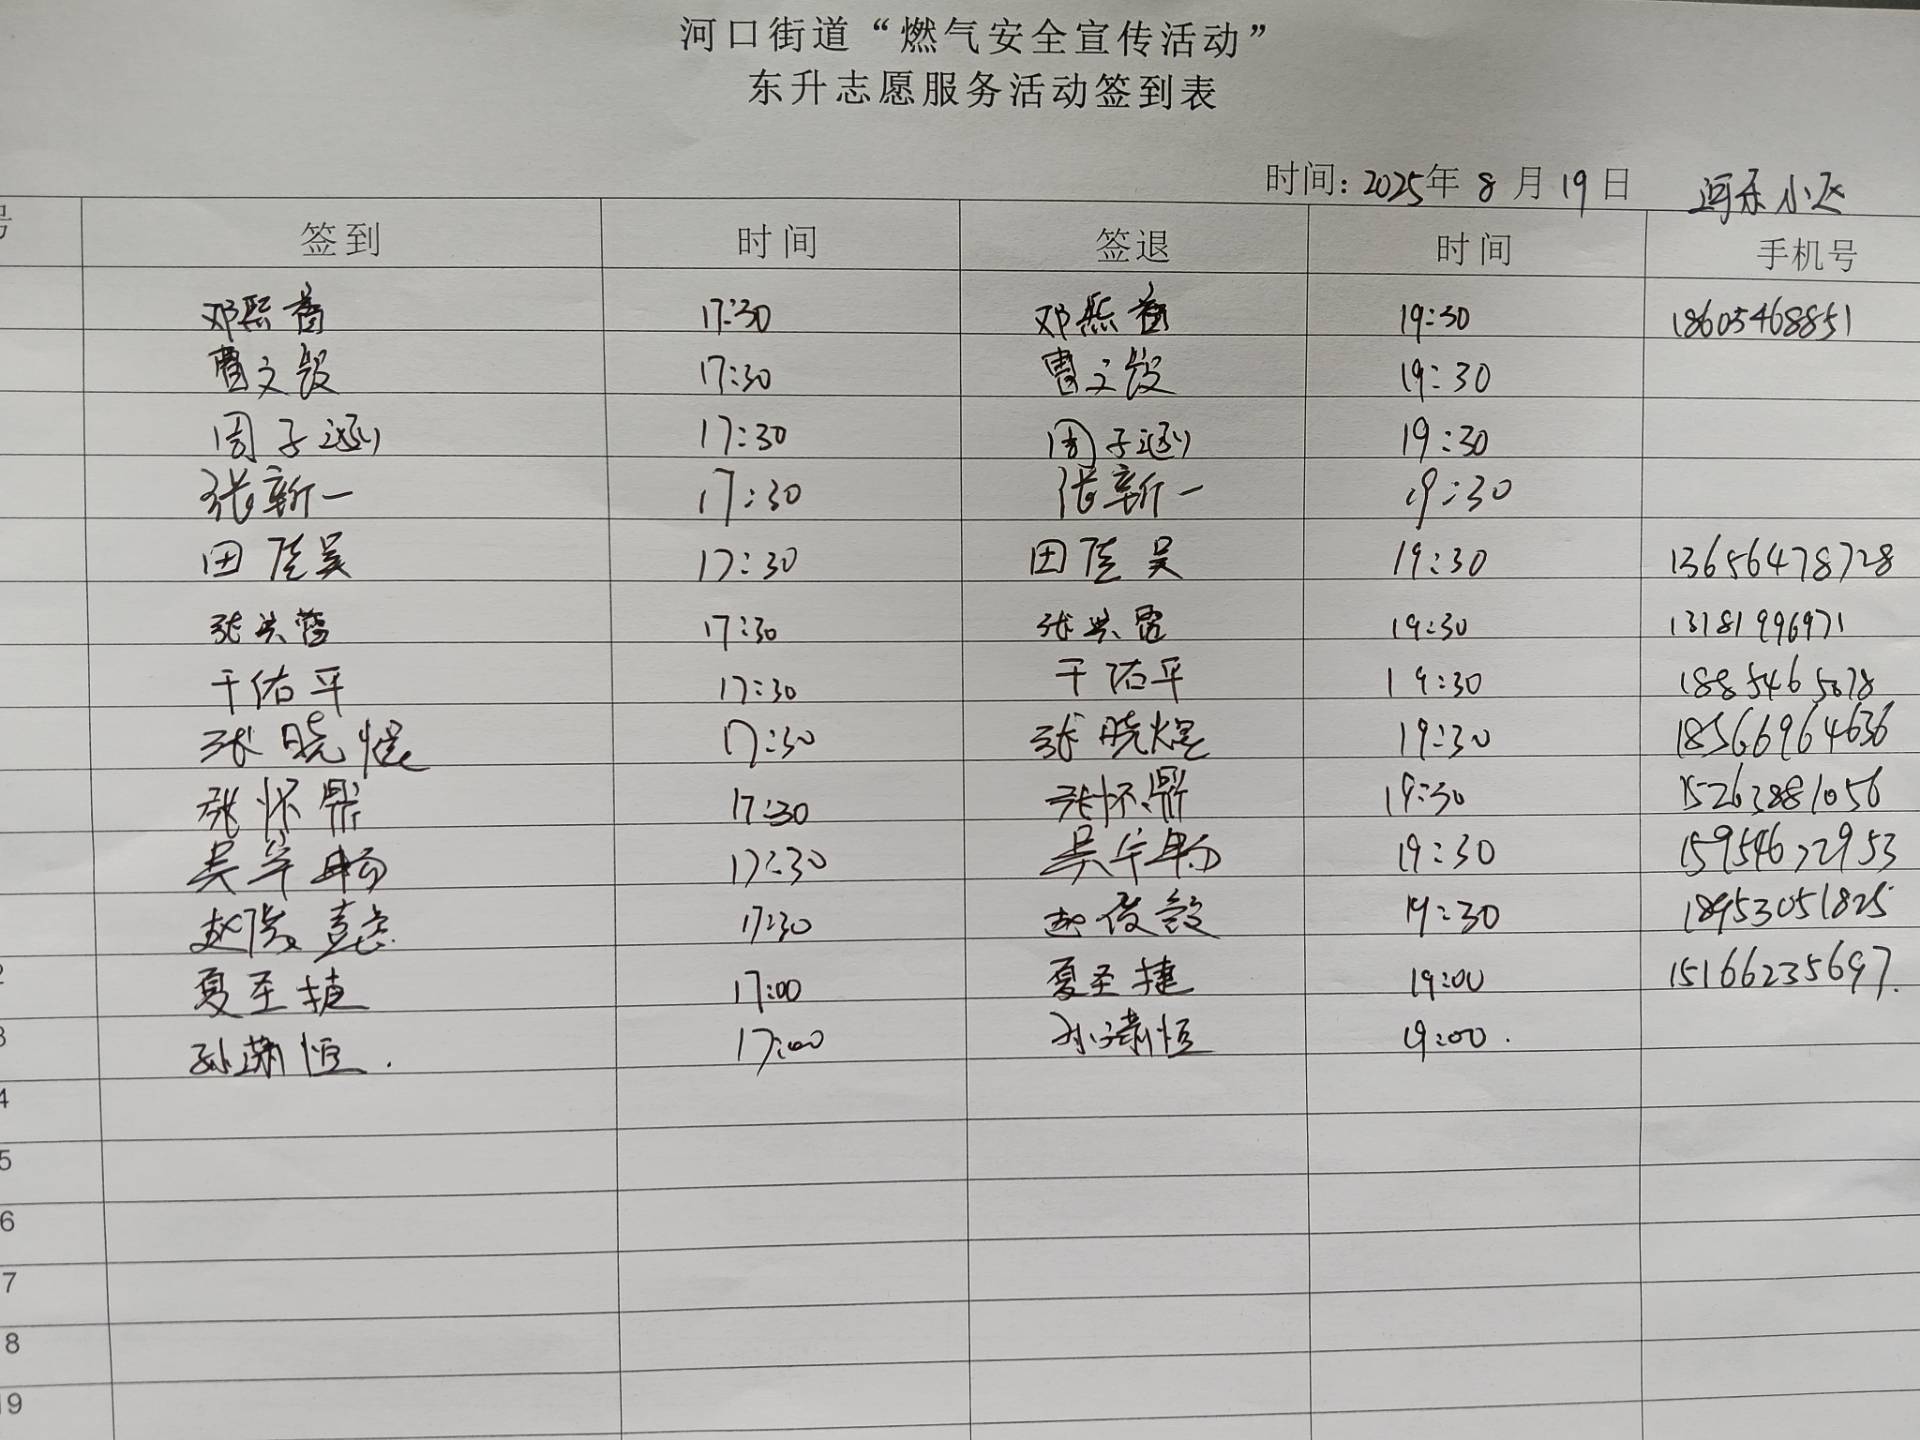 河口街道“燃气安全宣传活动”
东升志愿服务活动签到表
时间：2025年 8 月 19 日 河东小区
号 签到 时间 签退 时间 手机号
邓熙 17:30 邓熙 19:30 18605468851
曹文 17:30 曹文 19:30
周子涵 17:30 周子涵 19:30
张新一 17:30 张新一 19:30
田 昊 17:30 田 昊 19:30 13656478728
张兴 17:30 张兴 19:30 13181996971
于佑平 17:30 于佑平 19:30 1885465078
张晓煜 17:30 张晓煜 19:30 18566964636
张怀鼎 17:30 张怀鼎 19:30 15263881056
吴宇畅 17:30 吴宇畅 19:30 15954672953
赵俊懿 17:30 赵俊懿 19:30 18953051825
2 夏圣捷 17:00 夏圣捷 19:00 15166235697.
3 孙潇恒. 17:00 孙潇恒 19:00.
4
5
6
7
8
19